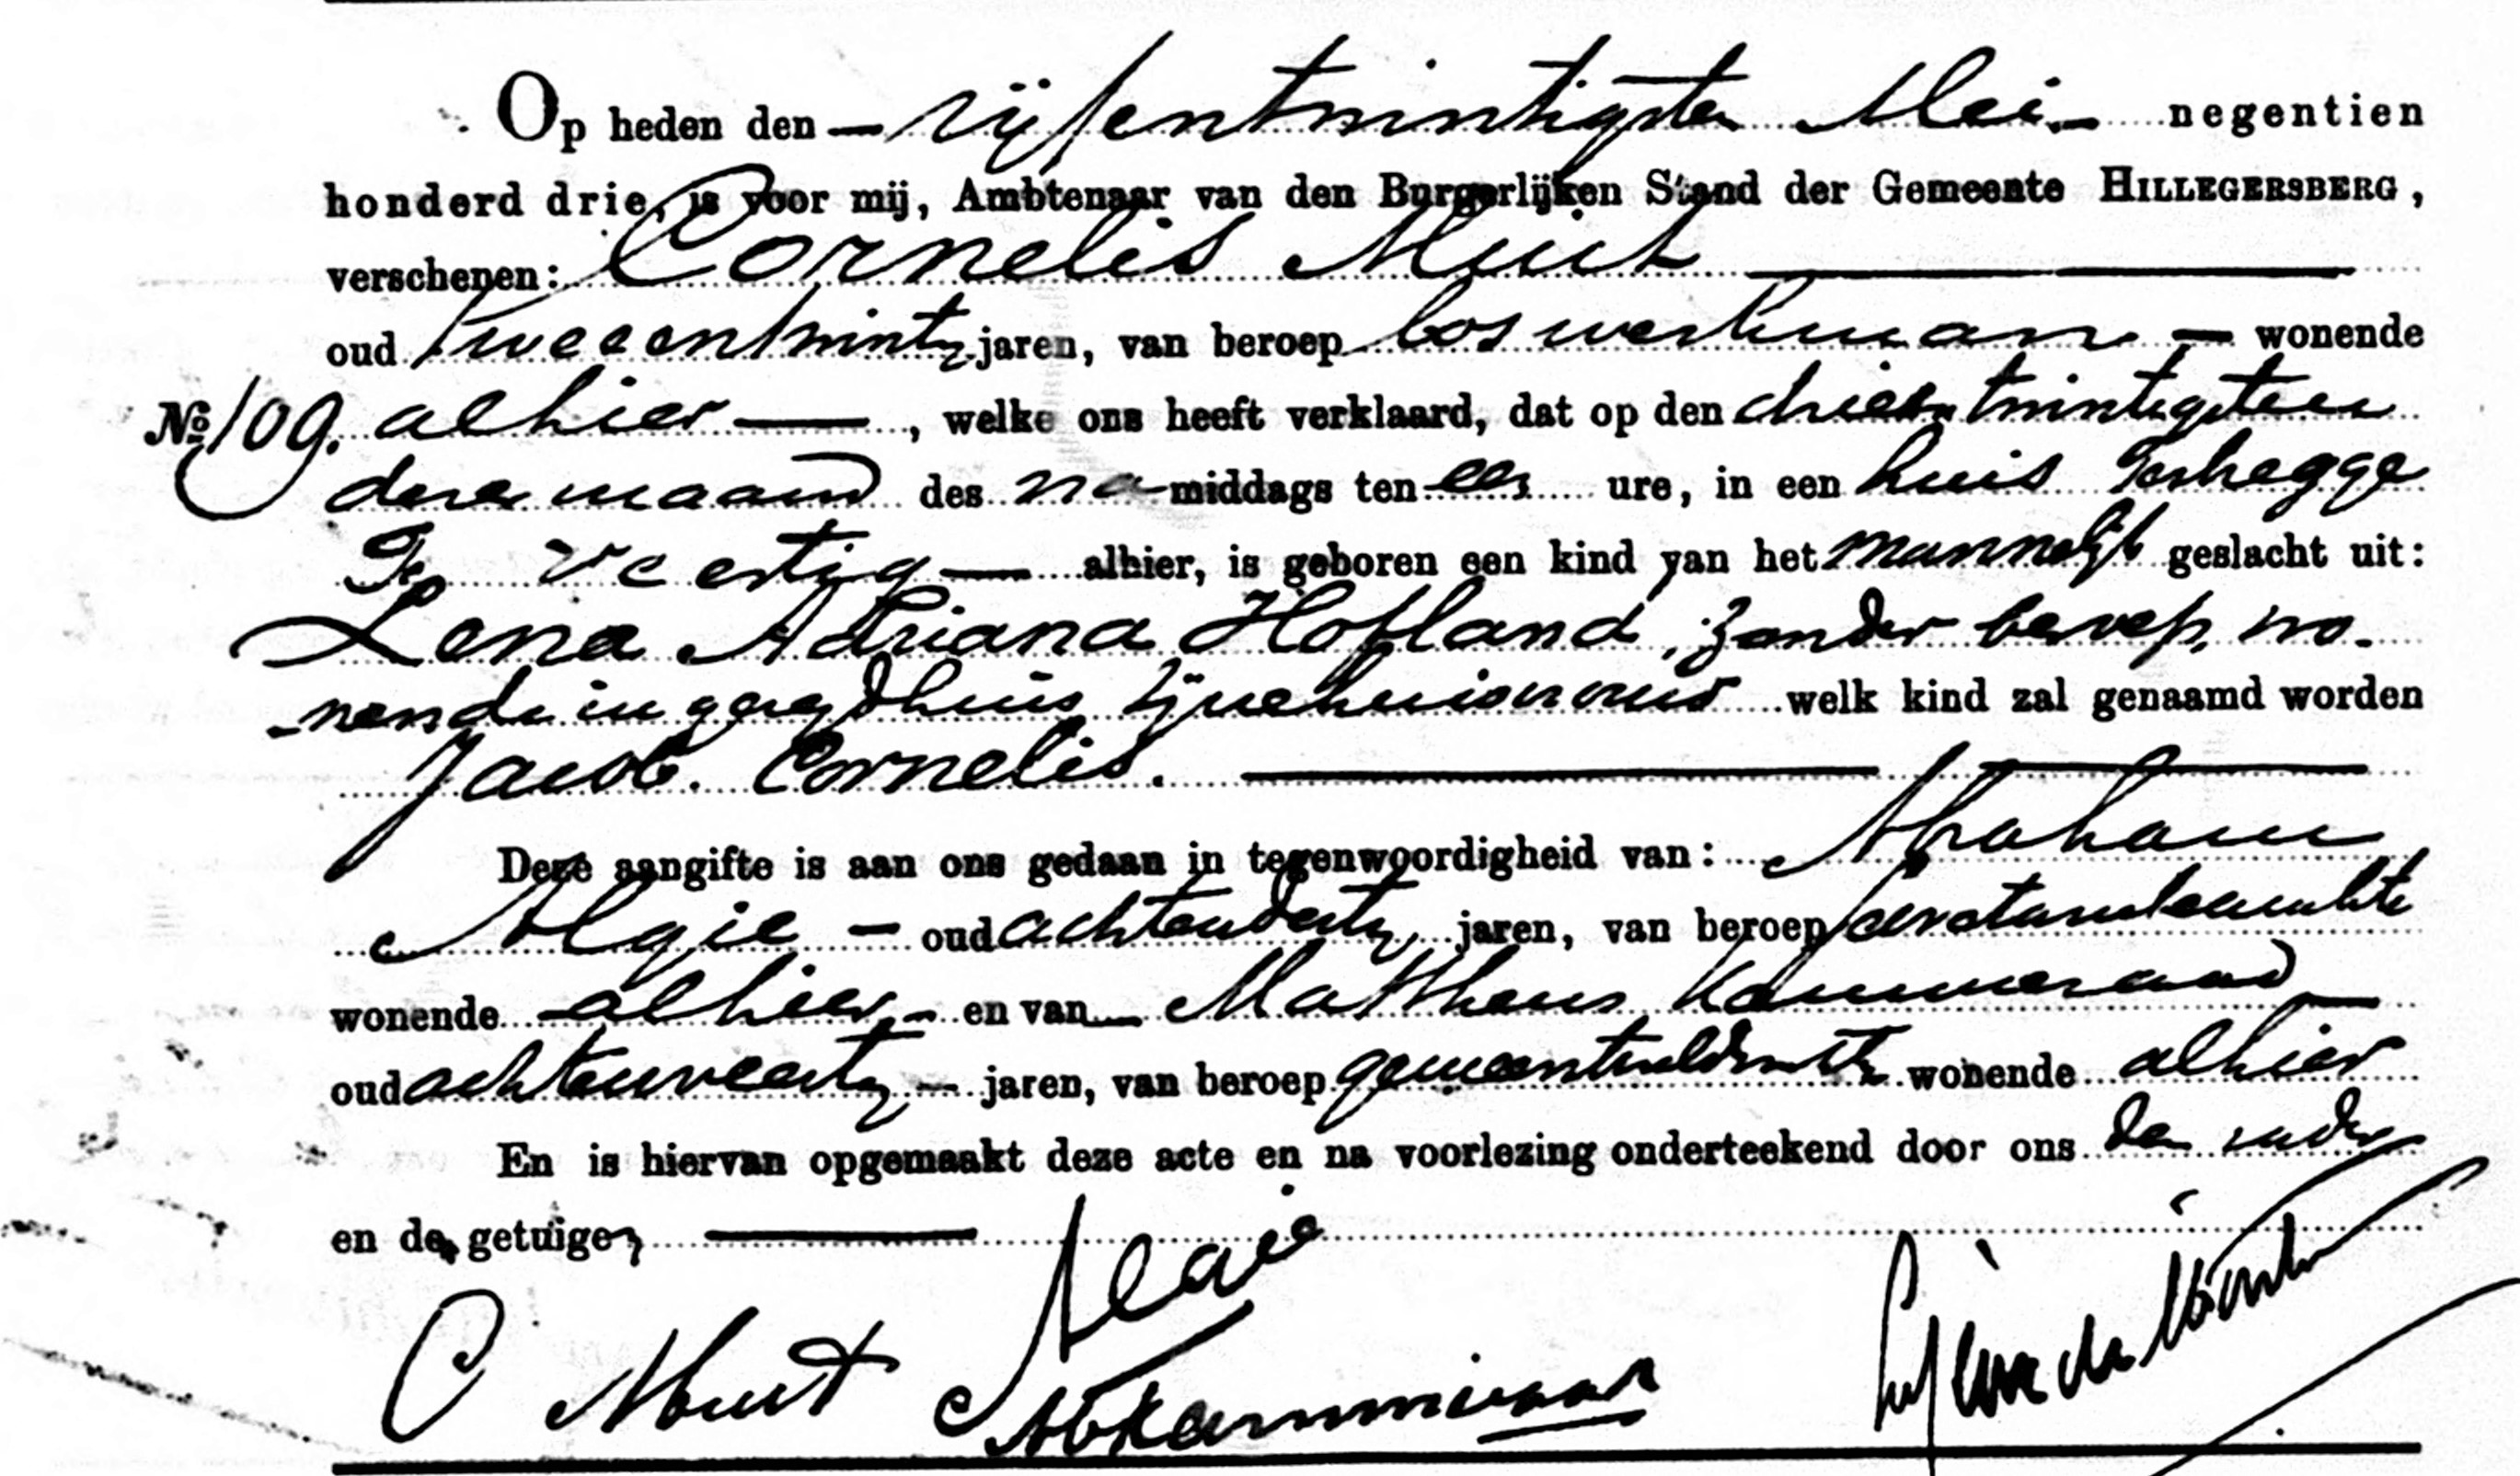 Op heden den — vijfentwintigsten Mei — negentien
honderd drie, is voor mij, Ambtenaar van den Burgerlijken Stand der Gemeente HILLEGERSBERG,
verschenen: Cornelis Muit
oud tweeentwintig jaren, van beroep los werkman — wonende
No 109. alhier —, welke ons heeft verklaard, dat op den drieentwintigsten
dezer maand des na middags ten een ure, in een huis Terbregge
veertig — alhier, is geboren een kind van het mannelijk geslacht uit:
Lena Adriana Hofland, zonder beroep, wo-
nende in gezegd huis zijne huisvrouw welk kind zal genaamd worden
Jacob Cornelis.
Deze aangifte is aan ons gedaan in tegenwoordigheid van: Abraham
Algie — oud achtendertig jaren, van beroep
wonende alhier — en van — Mattheus Kammeraad
oud achtenveertig — jaren, van beroep gemeenteveldwachter wonende alhier
En is hiervan opgemaakt deze acte en na voorlezing onderteekend door ons de vader
en de getuigen
Algie
C Muit
MKammeraad